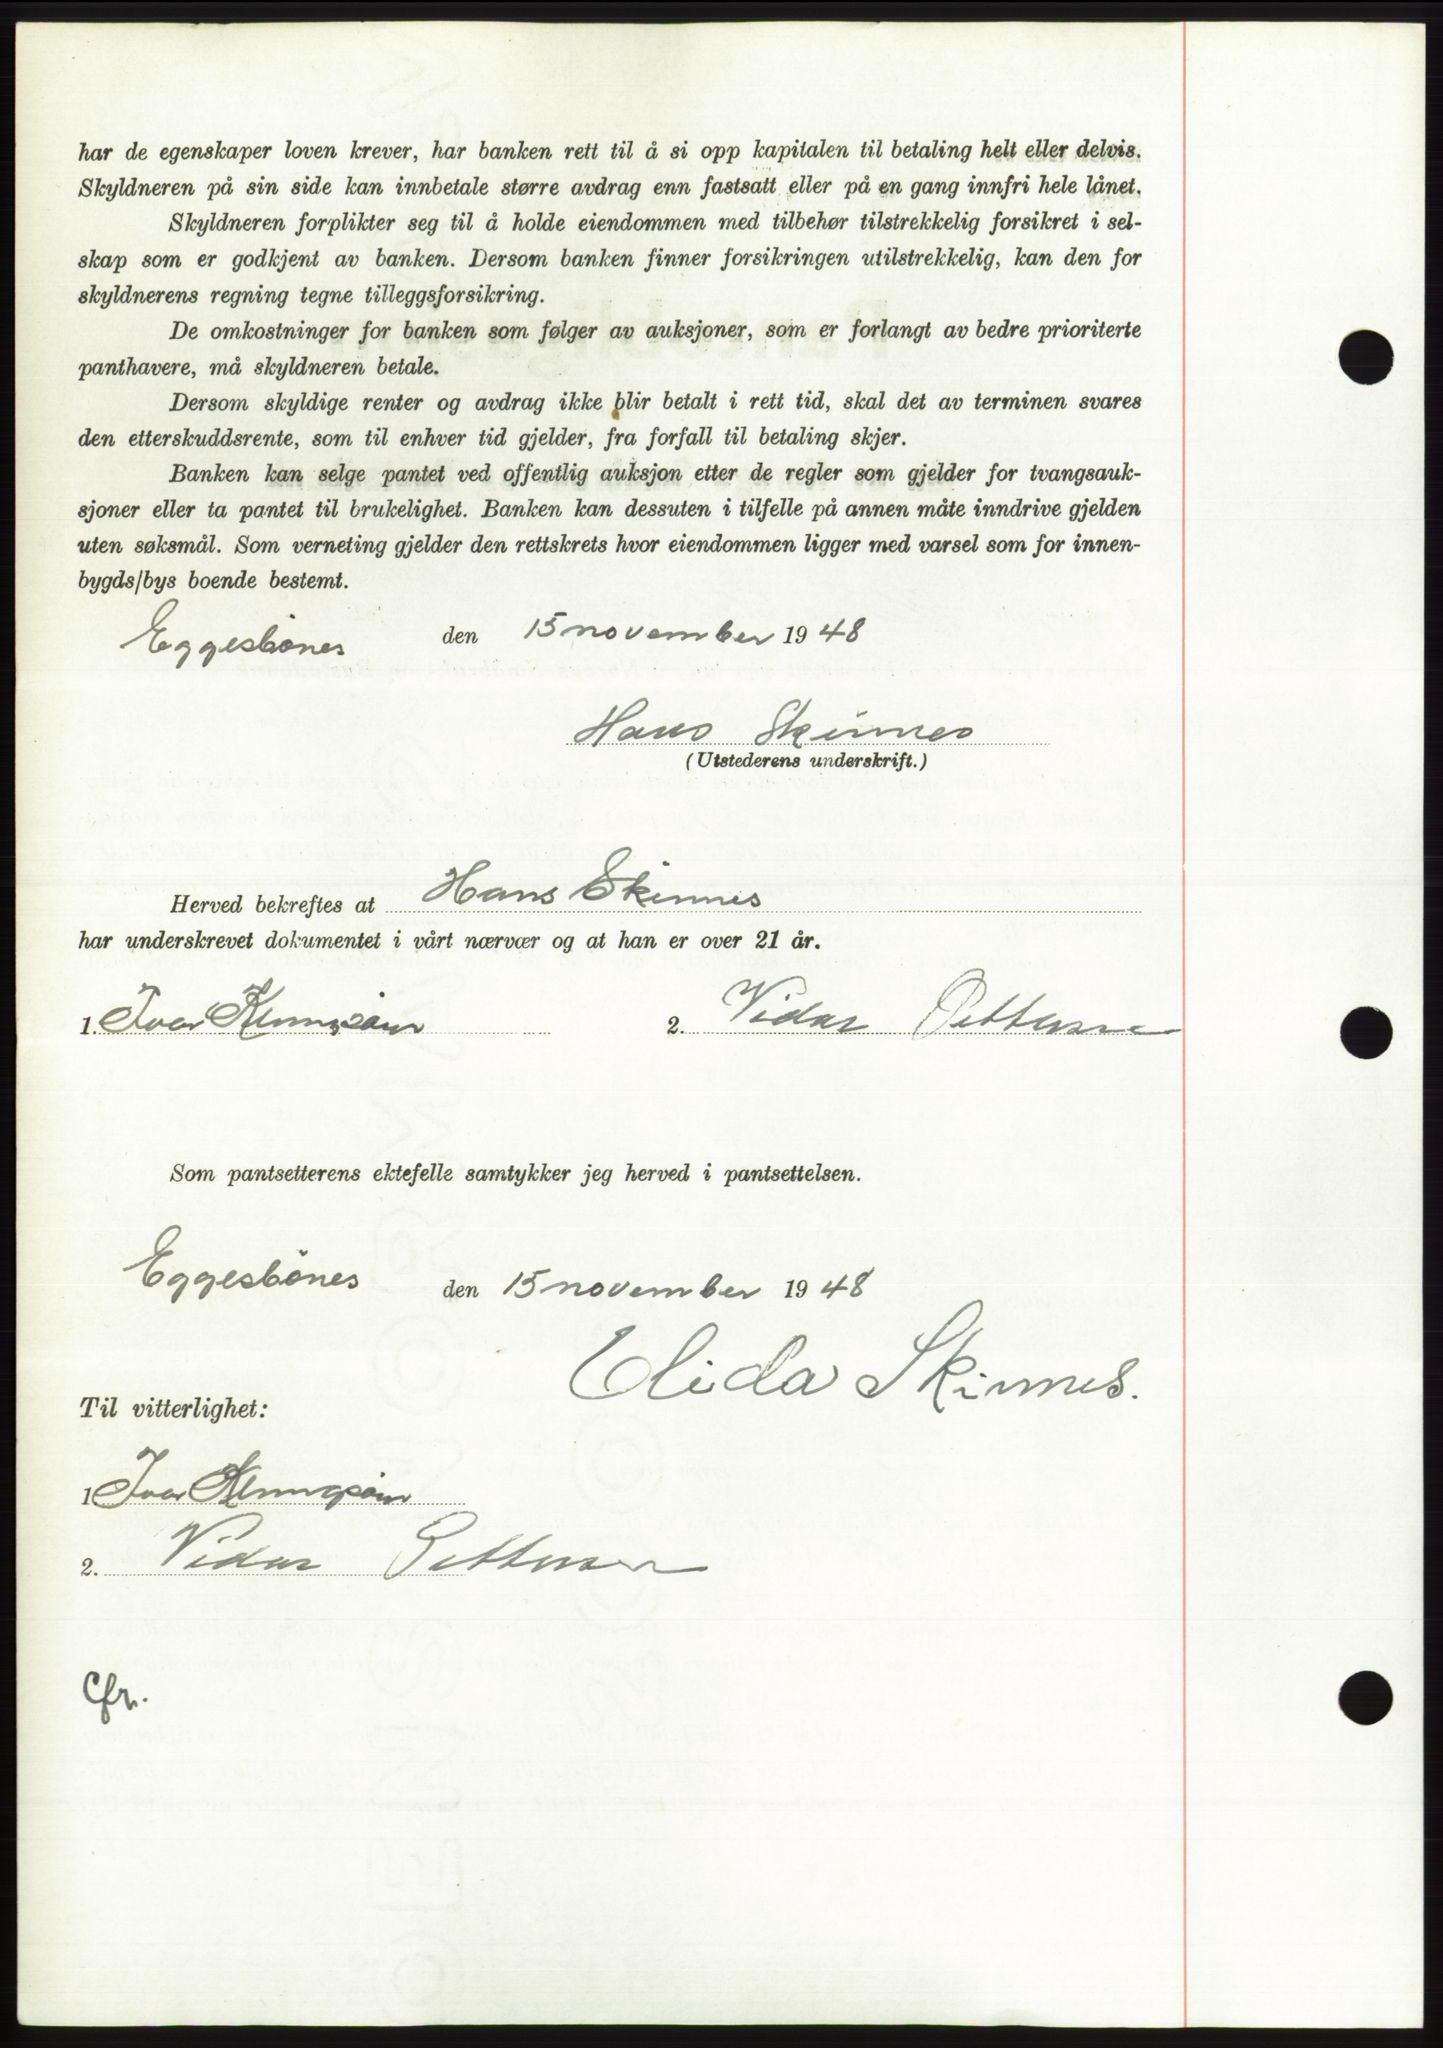 har de egenskaper loven krever, har banken rett til å si opp kapitalen til betaling helt eller delvis.
Skyldneren på sin side kan innbetale større avdrag enn fastsatt eller på en gang innfri hele lånet.
Skyldneren forplikter seg til å holde eiendommen med tilbehør tilstrekkelig forsikret i sel-
skap som er godkjent av banken. Dersom banken finner forsikringen utilstrekkelig, kan den for
skyldnerens regning tegne tilleggsforsikring.
De omkostninger for banken som følger av auksjoner, som er forlangt av bedre prioriterte
panthavere, må skyldneren betale.
Dersom skyldige renter og avdrag ikke blir betalt i rett tid, skal det av terminen svares
den etterskuddsrente, som til enhver tid gjelder, fra forfall til betaling skjer.
Banken kan selge pantet ved offentlig auksjon etter de regler som gjelder for tvangsauk-
sjoner eller ta pantet til brukelighet. Banken kan dessuten i tilfelle på annen måte inndrive gjelden
uten søksmål. Som verneting gjelder den rettskrets hvor eiendommen ligger med varsel som for innen-
bygds/bys boende bestemt.
Eggesbönes den 15 november 1948
Hans Skinnes
(Utstederens underskrift.)
Herved bekreftes at Hans Skinnes
har underskrevet dokumentet i vårt nærvær og at han er over 21 år.
1. Ivar 2. Vidar Pettersen
Som pantsetterens ektefelle samtykker jeg herved i pantsettelsen.
Eggesbönes den 15 november 1948
Elida Skinnes.
Til vitterlighet:
1 Ivar
2. Vidar Pettersen
Cfr.